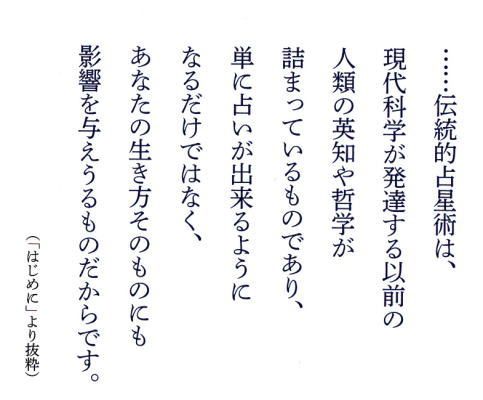 ……伝統的占星術は、
現代科学が発達する以前の
人類の英知や哲学が
詰まっているものであり、
単に占いが出来るように
なるだけではなく、
あなたの生き方そのものにも
影響を与えうるものだからです。
（「はじめに」より抜粋）